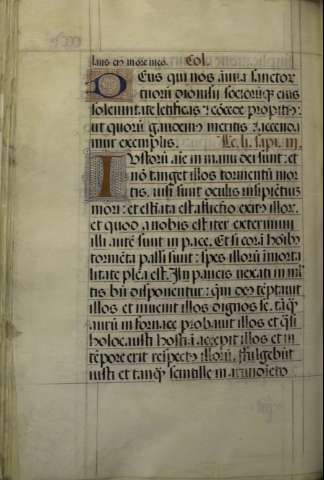 laus eius in ore meo. Col.
Deus qui nos annua sanctor
tuorum dionisii sociorumq; eius
solemnitate letificas : concede propitius:
ut quorum gaudemus meritis : accenda
mur exemplis. Lec. li. sapi. iii.
Iustorum aīe in manu dei sunt : et
nō tanget illos tormentū mor
tis. uisi sunt oculis insipiētiū
mori : et estīata est afflictio exitꝰ illor.
et quod a nobis est iter exterminii
illi autē sunt in pace. Et si corā hoībꝰ
tormēta passi sunt : spes illorū īmorta
litate plēa est. In paucis uexati in ml̄
tis bn̄ disponentur : qm̄ deꝰ tēptauit
illos et inuenit illos dignos se. tāq̄
aurū in fornace probauit illos et q̄si
holocausti hostiā accepit illos et in
tēpore erit respectꝰ illorū. Fulgebūt
iusti et tanq̄ scintille in arundineto